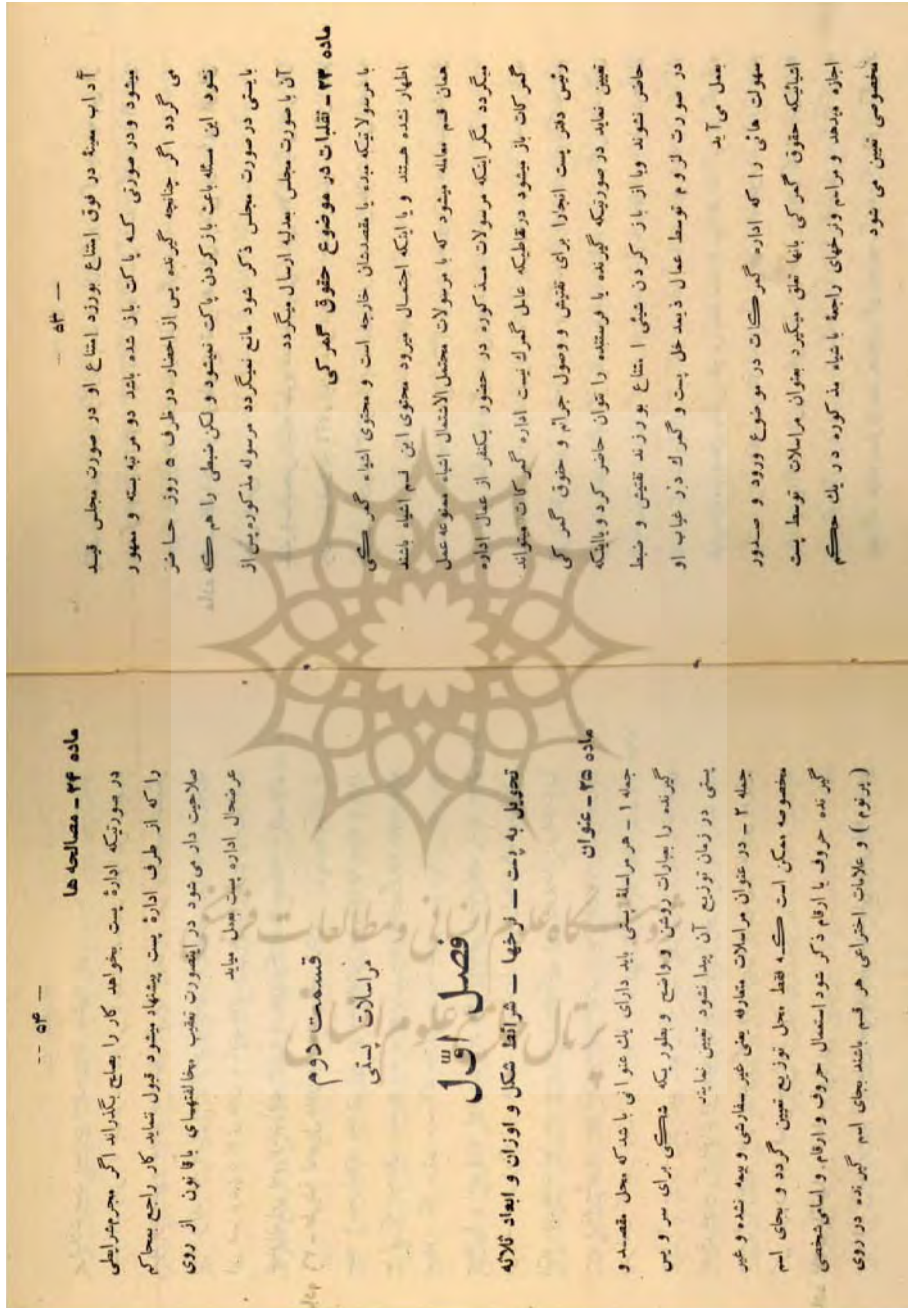 — ۵۳ —
آداب معینهٔ در فوق امتناع بورزد امتناع او در صورت مجلس قید
میشود و در صورتی که پاکت باز شده باشد دو مرتبه بسته و ممهور
می گردد اگر چنانچه گیرنده پس از احضار در ظرف ۵ روز حاضر
نشود این مسئله باعث باز کردن پاکت نمیشود و لکن ضبطی را هم که
بایستی در صورت مجلس ذکر شود مانع نمیگردد مرسوله مذکوره پس از
آن با صورت مجلس بعدلیه ارسال میگردد
ماده ۲۳ – تقلبات در موضوع حقوق گمرکی
با مرسولاتیکه مبدء یا مقصدشان خارجه است و محتوی اشیاء گمرکی
اظهار نشده هستند و یا اینکه احتمال میرود محتوی این قسم اشیاء باشند
همان قسم معامله میشود که با مرسولات محتمل الاشتمال اشیاء ممنوعه عمل
میگردد مگر اینکه مرسولات مذکوره در حضور یکنفر از عمال اداره
گمرکات باز میشود در نقاطیکه عامل گمرک نیست اداره گمرکات میتواند
رئیس دفتر پست آنجارا برای تفتیش و وصول جرائم و حقوق گمرکی
تعیین نماید در صورتیکه گیرنده یا فرستنده را نتوان حاضر کرد و یا اینکه
حاضر نشوند و یا از باز کردن شیئی امتناع بورزند تفتیش و ضبط
در صورت لزوم توسط عمال ذیمدخل پست و گمرک در غیاب او
بعمل می آید
سهولت هائی را که اداره گمرکات در موضوع ورود و صدور
اشیائیکه حقوق گمرکی بآنها تعلق میگیرد بعنوان مراسلات توسط پست
اجازه میدهد و مراسم و نرخهای راجعهٔ باشیاء مذکوره در یک حکم
مخصوصی تعیین می شود
— ۵۴ —
ماده ۲۴ – مصالحه ها
در صورتیکه ادارهٔ پست بخواهد کار را بصلح بگذراند اگر مجرم شرایطی
را که از طرف ادارهٔ پست پیشنهاد میشود قبول ننماید کار راجع بمحاکم
صلاحیت دار می شود در اینصورت تعقیب مخالفتهای با قانون از روی
عرضحال اداره پست بعمل میاید
قسمت دوم
مراسلات پستی
فصل اوّل
تحویل به پست – نرخها – شرائط شکل و اوزان و ابعاد ثلاثه
ماده ۲۵ – عنوان
جمله ۱ – هر مراسلهٔ پستی باید دارای یک عنوانی باشد که محل مقصد و
گیرنده را بعبارات روشن و واضح و بطوریکه شکی برای سرویس
پستی در زمان توزیع آن پیدا نشود تعیین نماید
جمله ۲ – در عنوان مراسلات متعارفه یعنی غیر سفارشی و بیمه نشده و غیر
مخصوصه ممکن است که فقط محل توزیع تعیین گردد و بجای اسم
گیرنده حروف یا ارقام ذکر شود استعمال حروف و ارقام و اسامی شخصی
(پرنوم) و علامات اختراعی هر قسم باشند بجای اسم گیرنده در روی